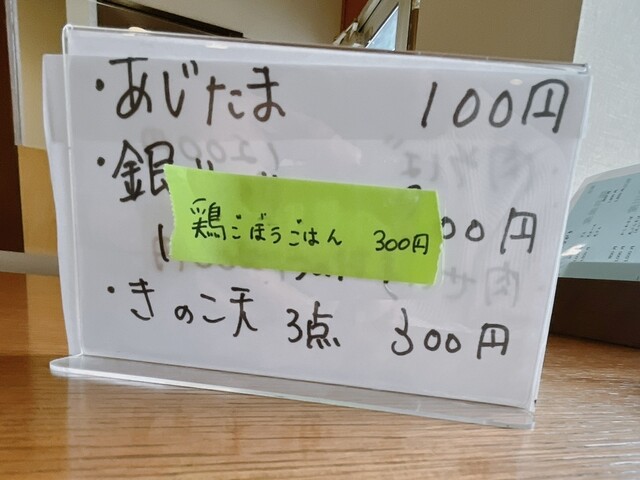 ・あじたま 100円
・銀
鶏ごぼうごはん 300円
00円
・きのこ天 3点 300円